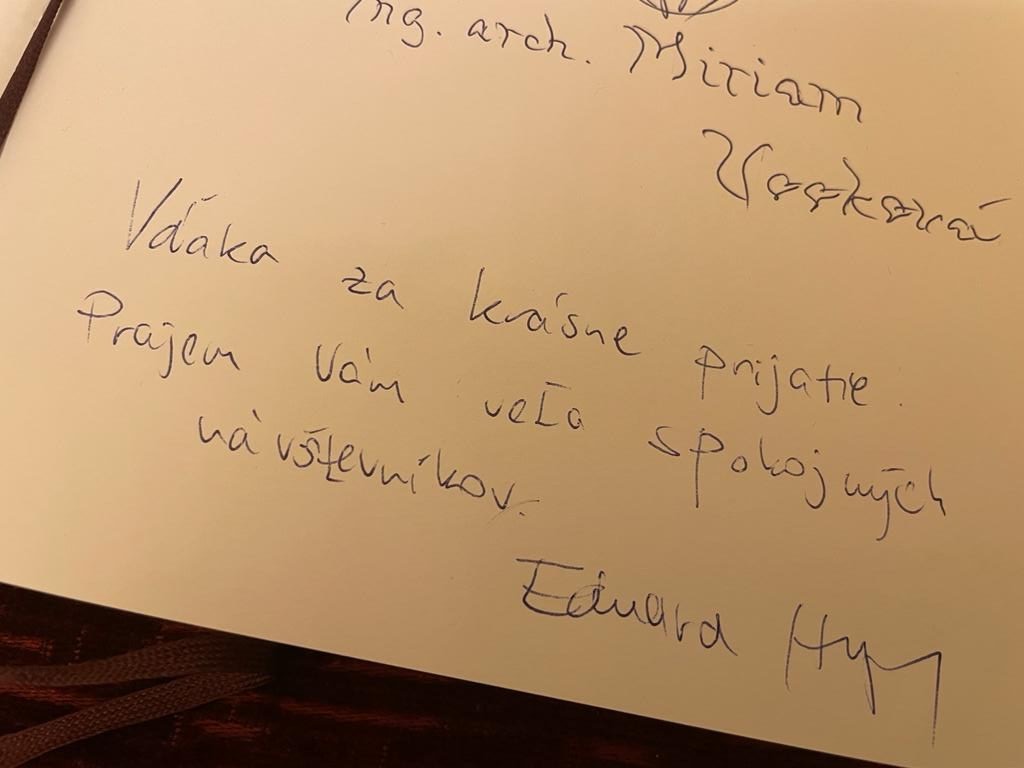 Ing. arch. Miriam
Vďaka za krásne prijatie.
Prajem Vám veľa spokojných
návštevníkov.
Eduard